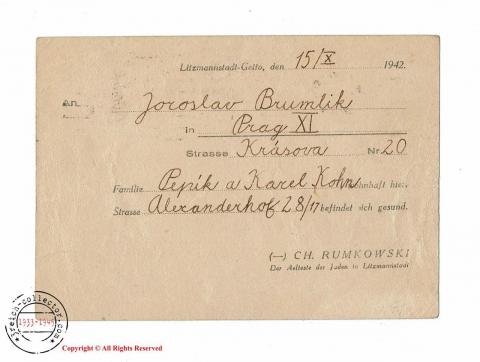 Litzmannstadt-Getto, den 15/X 1942.
An Joroslav Brumlik
in Prag XI
Strasse Krásova Nr 20
Familie Pepík a Karel Kohn wohnhaft hier,
Strasse Alexanderhof 28/17 befindet sich gesund.
(—) CH. RUMKOWSKI
Der Aelteste der Juden in Litzmannstadt
3reich-collector.com
1933-1945
Copyright © All Rights Reserved